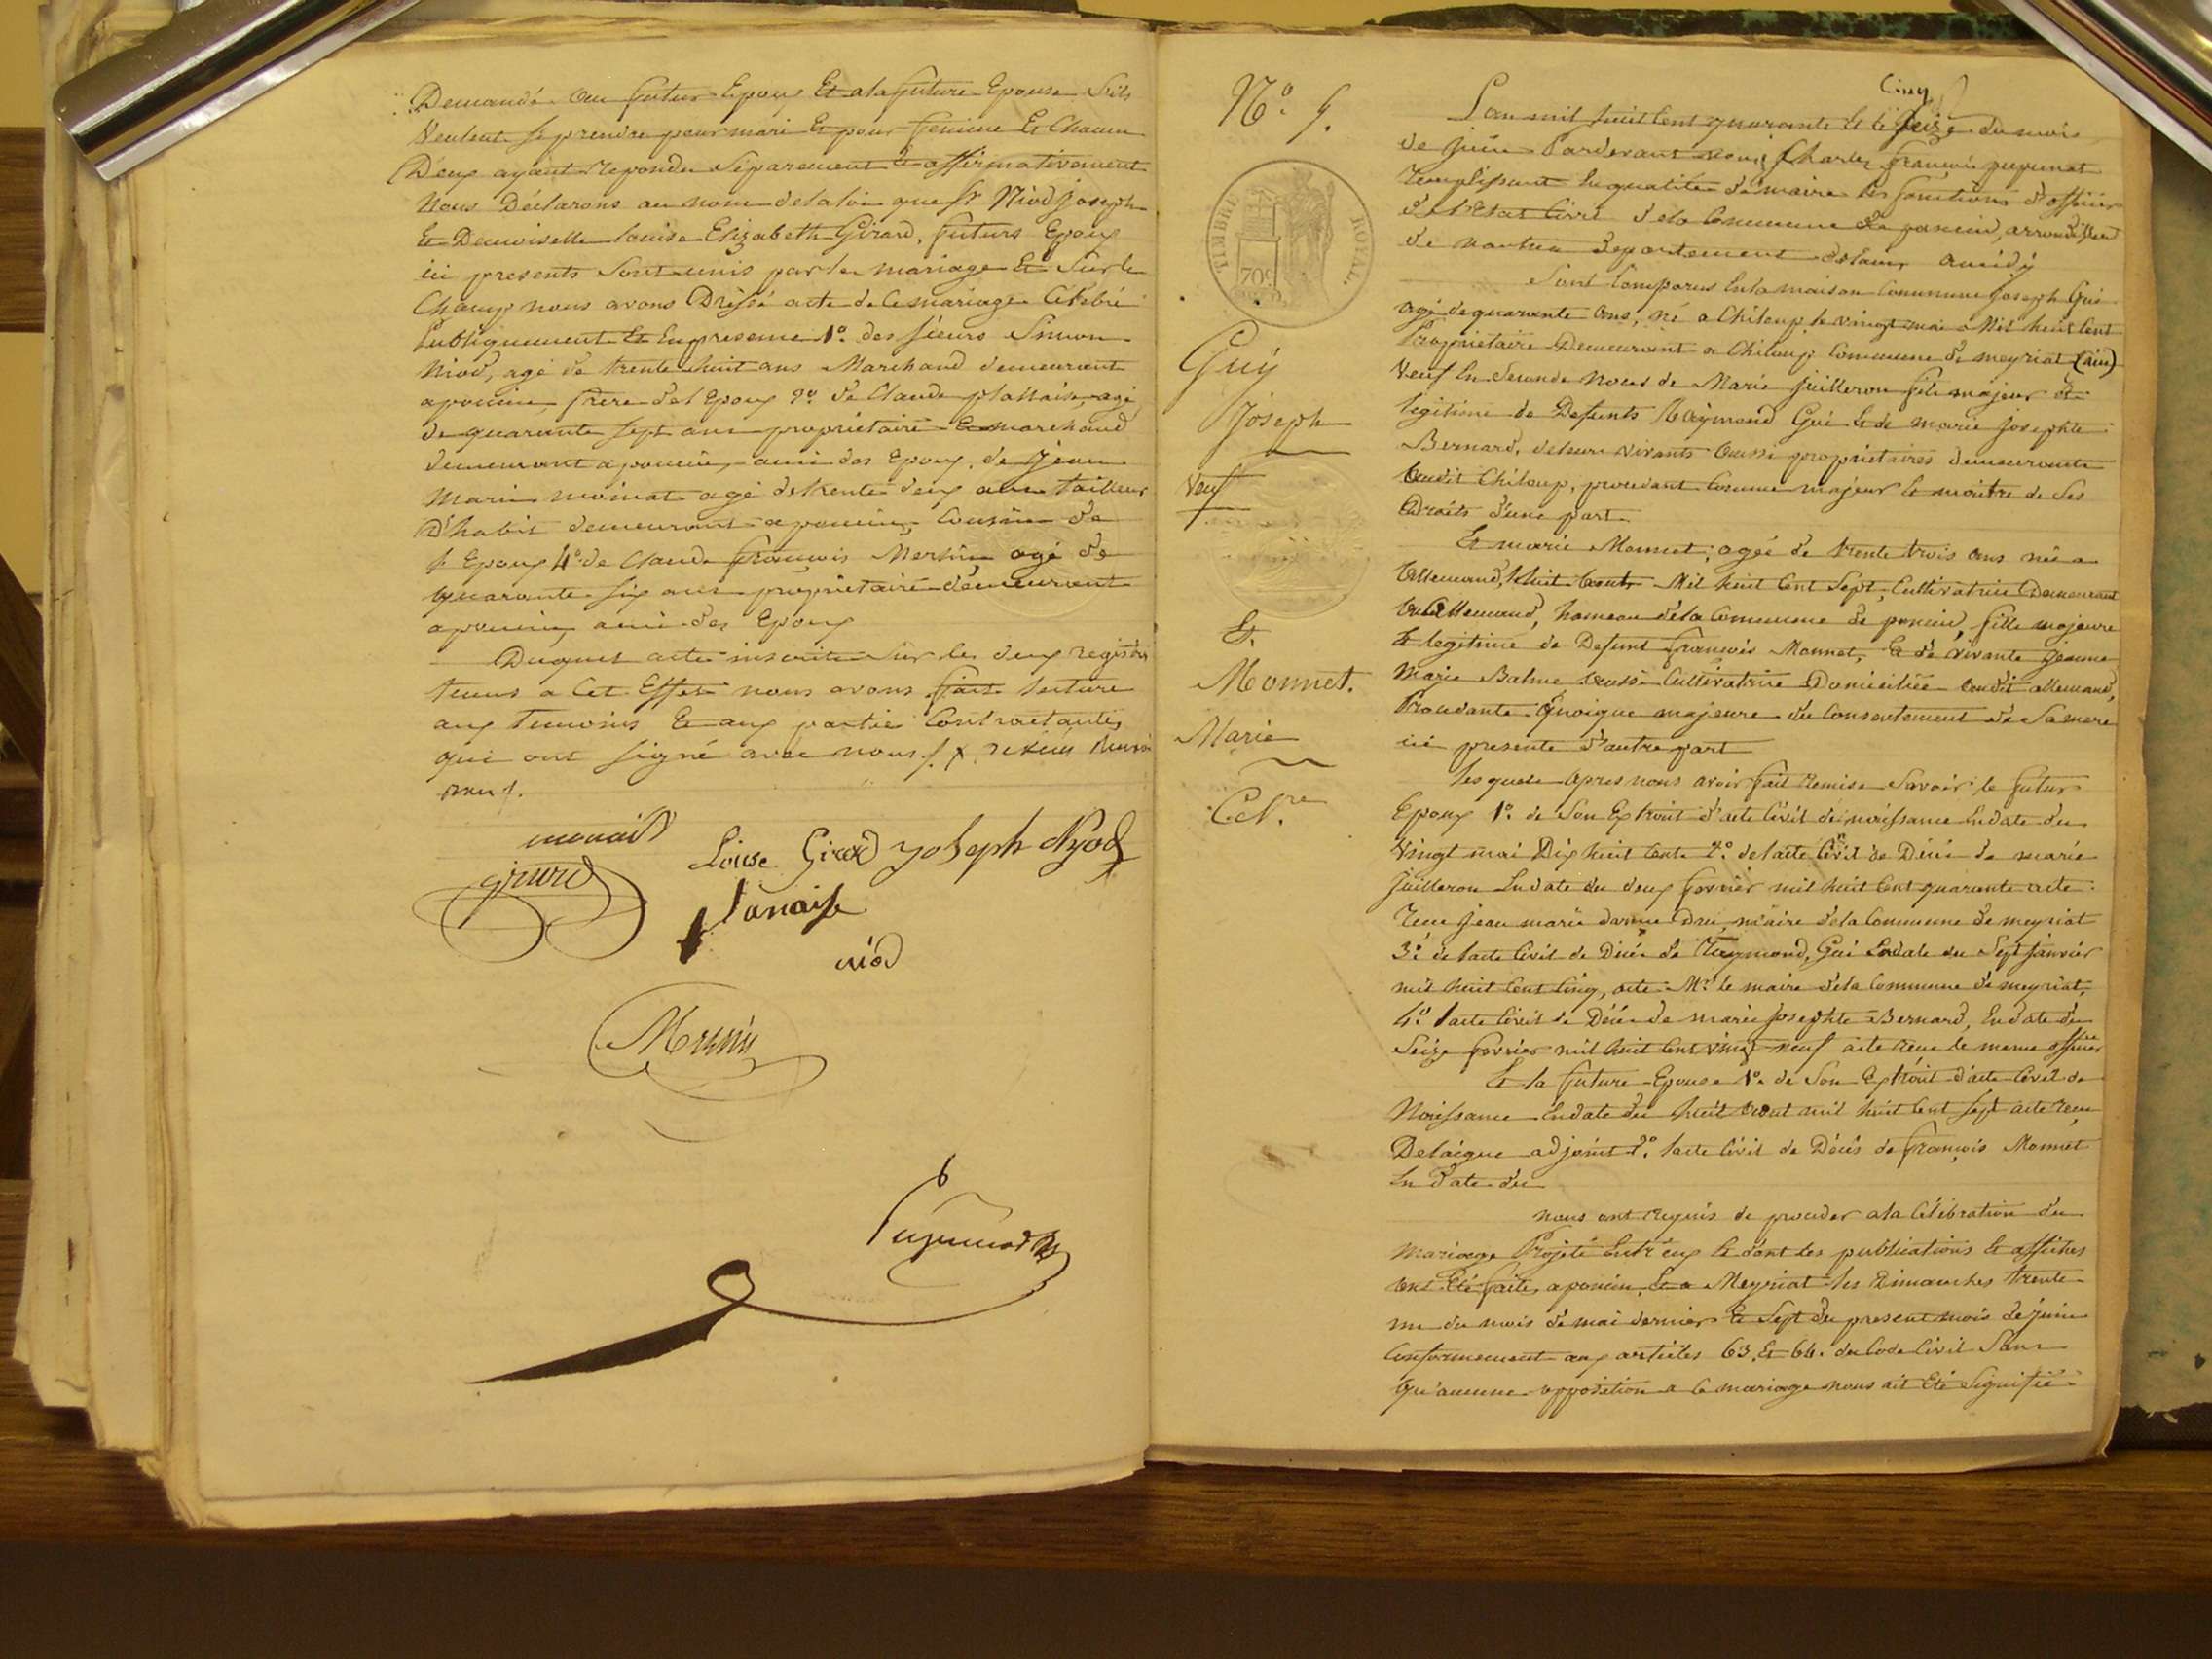 Demandé au futur Epoux Et a la future Epouse S'ils
Veulent se prendre pour mari Et pour femme Et Chacun
D'eux ayant repondu Séparement Et affirmativement
Nous Déclarons au nom de la loi que Sr Niod Joseph
Et Demoiselle Louise Elizabeth Girard, futurs Epoux
ici presents Sont unis par le mariage Et Sur le
Champ nous avons Dréssé acte de Ce mariage Célébré
Publiquement Et En presence 1º. des Sieurs Simon
Niod, agé de trente huit ans Marchand demeurant
a poncin, frère de l'Epoux 2º. de Claude plattaise, agé
de quarante Sept ans propriétaire Et marchand
demeurant a poncin, ami des Epoux, de Jean
Marie moinat agé de trente deux ans tailleur
D'habit demeurant a poncin, Cousin de
l'Epoux 4º. de Claude françois Mersin, agé de
quarante Six ans propriétaire demeurant
a poncin, ami des Epoux
Duquel acte inscrite Sur les deux registres
tenus a Cet Effet nous avons fait lecture
aux temoins Et aux partie Contractantes
qui ont Signé avec nous
Louise Girard Joseph Nyod
girard
niod
Mersin
Nº. 5.
TIMBRE ROYAL
70c
Guy
Joseph
Veuf
Et
Monnet.
Marie
Cel.re
Cinq
L'an mil huit Cent quarante Et le Seize du mois
de juin Pardevant nous Charles françois guyenet
remplissant En qualité de maire les fonctions d'officier
de l'Etat Civil de la Commune de poncin, arrondissement
de nantua Departement de l'ain
Sont Comparus En la maison Commune Joseph Gui
agé de quarante Ans, né a Chiloup le vingt mai Mil huit Cent
Propriétaire Demeurant a Chiloup Commune de meyriat (ain)
Veuf En Seconde Noces de Marie juilleron fils majeur Et
légitime de Defunts Raymond Gui Et de marie josephte
Bernard, de leurs vivants aussi propriétaires demeurants
audit Chiloup, procedant Comme majeur Et maitre de Ses
Droits d'une part
Et marie Monnet, agée de trente trois ans née a
Allemand, huit aout Mil huit Cent Sept, Cultivatrice Demeurant
au Allemand, hameau de la Commune de poncin, fille majeure
Et legitime de Defunt françois Monnet, Et de vivante jeanne
Marie Balme aussi Cultivatrice Domiciliée audit allemand,
Procedante Quoique majeure du Consentement de Sa mere
ici presente d'autre part
Les quels après nous avoir fait remise Savoir le futur
Epoux 1º. de Son Extrait d'acte Civil de naissance En date du
Vingt mai Dix huit Cent 2º. de l'acte Civil de Décés de marie
Juilleron En date du deux fevrier mil huit Cent quarante acte
recu jean marie maire de la Commune de meyriat
3º. de l'acte Civil de Décés de Raymond, Gui En date du Sept janvier
mil huit Cent Cinq, acte Mr. le maire de la Commune de meyriat,
4º. l'acte Civil de Décés de marie Josephte Bernard, En date du
Seize fevrier mil huit Cent vingt neuf acte recu le meme officier
Et la future Epouse 1º. de Son Extrait d'acte Civil de
Naissance En date du huit aout mil huit Cent Sept acte recu
Delaigue adjoint 2º. l'acte Civil de Décés de françois Monnet
En Date du
nous ont requis de proceder a la Célébration du
mariage Projeté Entr'eux Et dont les publications Et affiches
ont Eté faite, a poncin, Et a Meyriat les Dimanches trente
un du mois de mai dernier Et Sept du present mois de juin
Conformement aux articles 63. Et 64. du Code Civil Sans
qu'aucune opposition a Ce mariage nous ait Eté Signifié